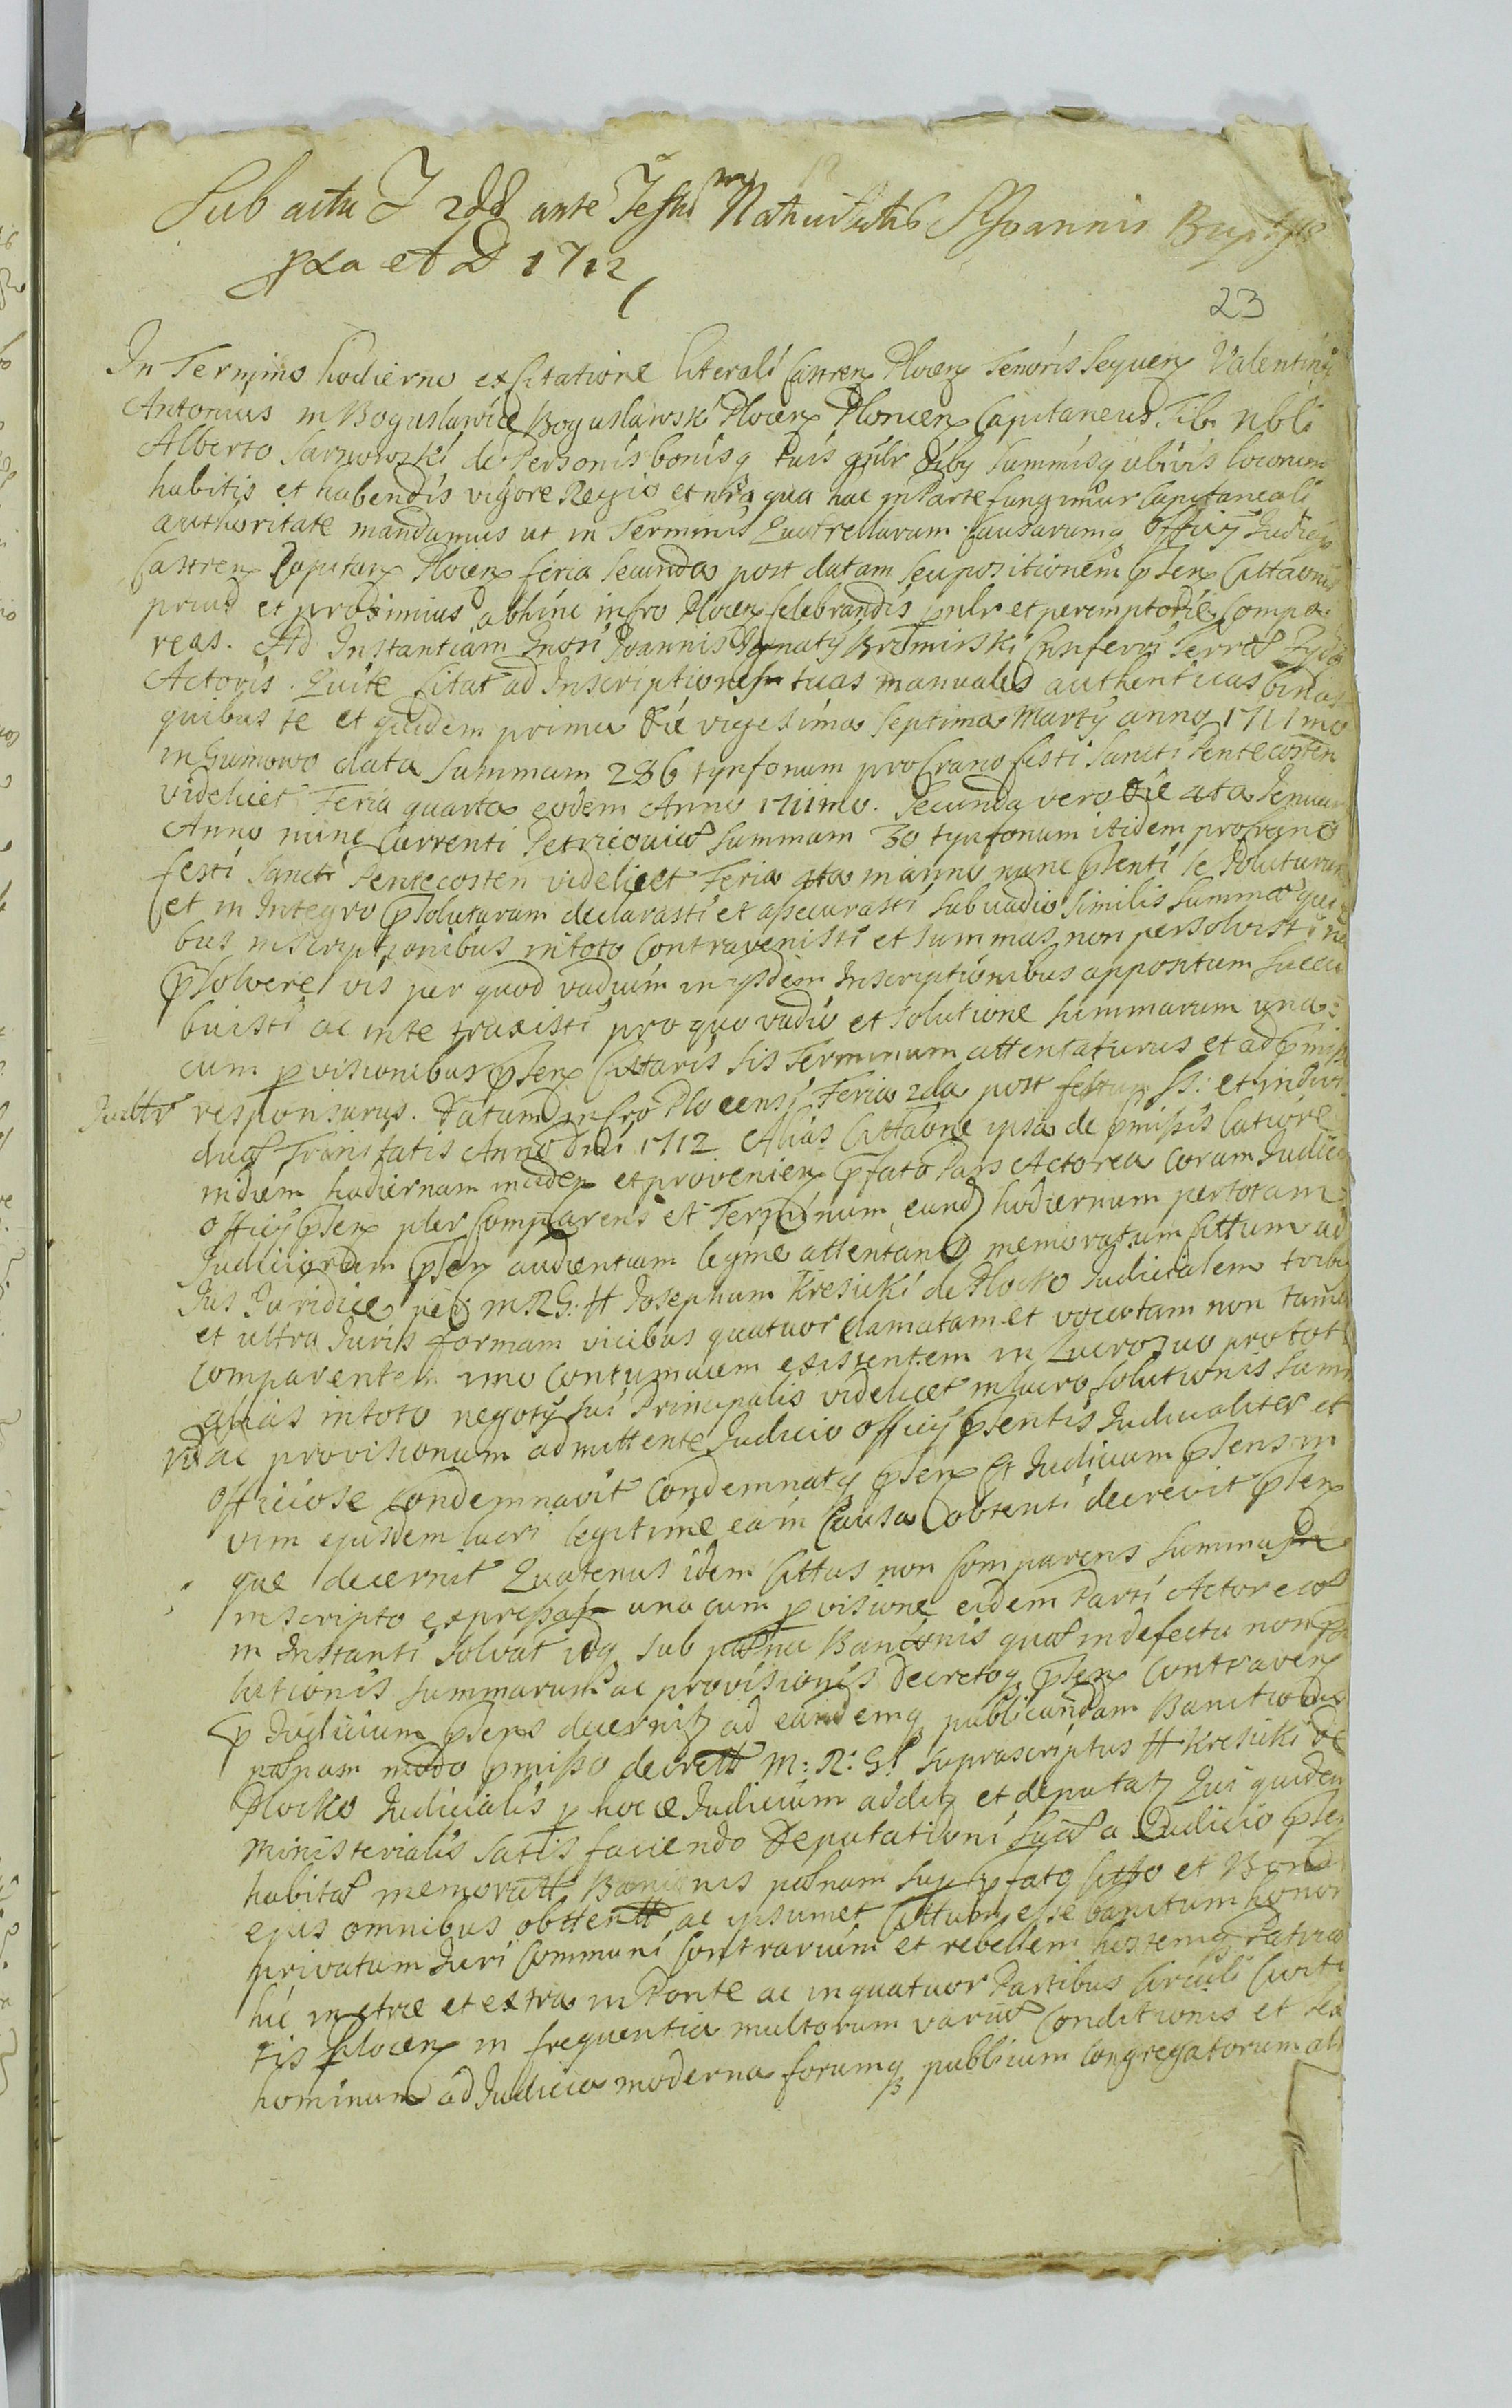 Sub actu F 2da ante Festum Nativitatis S Joannis Bapt
pxa et D 1712
23
In Termino hodierno ex Citatione literali Castren Plocen Tenoris Sequen Valentinus
Antonius in Bogusławice Bogusławski Plocen Plonen Capitaneus. Tibi Nbli
Alberto Sarnowski de Personis bonisq tuis gnlr oibq Summisq ubivis locorum
habitis et habendis vigore Regio et nra qua hac in Parte fungimur Capitaneali
authoritate mandamus ut in Terminis Querellarum Causarumq Officij Judicij
Castren Capitan Plocen feria Secunda post datam seu positionem pnsen Citaonis
prius et proximius abhinc in Cro Plocen Celebrandis pnlr et peremptorie Compa
reas. Ad Instantiam Gnosi Joannis Ignatij Bromirski Ensiferi Terræ Zyd
Actoris. Qui te Citat ad Inscriptiones tuas manuales authenticas binas
quibus te et quidem prima die vigesima Septima Martij anno 1711mo
in Gumowo data Summam 286 tynfonum pro Crano festi Sancti Pentecosten
videlicet Feria quarta eodem Anno 1711mo. Secunda vero die 4ta Januar
Anno nunc Currenti Petricoviæ Summam 30 tynfonum itidem pro Crano
festi Sancti Pentecosten videlicet Feria 4ta in anno nunc psenti se soluturum
et in Integro psoluturum declarasti et assecurasti sub vadio Similis Summæ qui
bus inscriptionibus in toto Contravenisti et Summas non persolvisti n
psolvere vis per quod vadium in ijsdem Inscriptionibus appositum Succu
buisti ac in te traxisti pro quo vadio et Solutione Summarum una
cum pvisionibus psen Cittaris sis Terminum attentaturus et ad pmiss
responsurus. Datum in Cro Plocensi Feria 2da post festum SS: et indivi
duæ Trinitatis Anno Dni 1712 Alias Cittaone ipsa de pmissis latiore
in diem hodiernam inciden et provenien pfato Pars Actorea Coram Judicio
officij psen pler Comparens et Terminum eund hodiernum per totam
Judiciorum psen audientiam legme attentando memoratum Cittum ad
Jus Juridice per M R G. H Josephum Kresicki de Plocko Judicialem tribus
et ultra Juris formam vicibus quatuor clamatam et vocatam non tamen
Comparentem imo Contumacem existentem in Lucro suo pro toto
alias in toto negotij sui Principalis videlicet in lucro solutionis Sum
ac provisionum admittente Judicio Officij psentis Judicialiter et
officiose Condemnavit Condemnatq psen Et Judicium psens in
vim ejusdem lucri legitime ea in Causa obtenti decrevit psen
que decernit Quatenus idem Cittus non Comparens Summas
inscripto expressas una cum pvisione eidem Parti Actoreæ
in Instanti Solvat idq sub pœna Banionis quæ in defectu non so
lutionis Summarum ac provisionis Decretoq psen Contraven
p Judicium psens decernitz ad eandemq publicandam Banitio
pœnam modo pmisso decrett M: R: G: Suprascriptus H Kresicki de
Plocko Judicialis p hocce Judicium additz et deputatz Qui quidem
Ministerialis Satis faciendo Deputationi Suæ a Judicio psen
habitæ memoratt Banionis pœnam Sup pfato Citto et Bonis
ejus omnibus obttentt ac ipsumet Cittum esse banitum honore
privatum Juri Communi Contrarium et rebellem hostemq Patriæ
hic in Arce et extra in Ponte ac in quatuor Partibus Circuli Civita
tis Plocen in frequentia multorum variæ Conditionis et Sex
hominum ad Judicia moderna forumq publicum Congregatorum